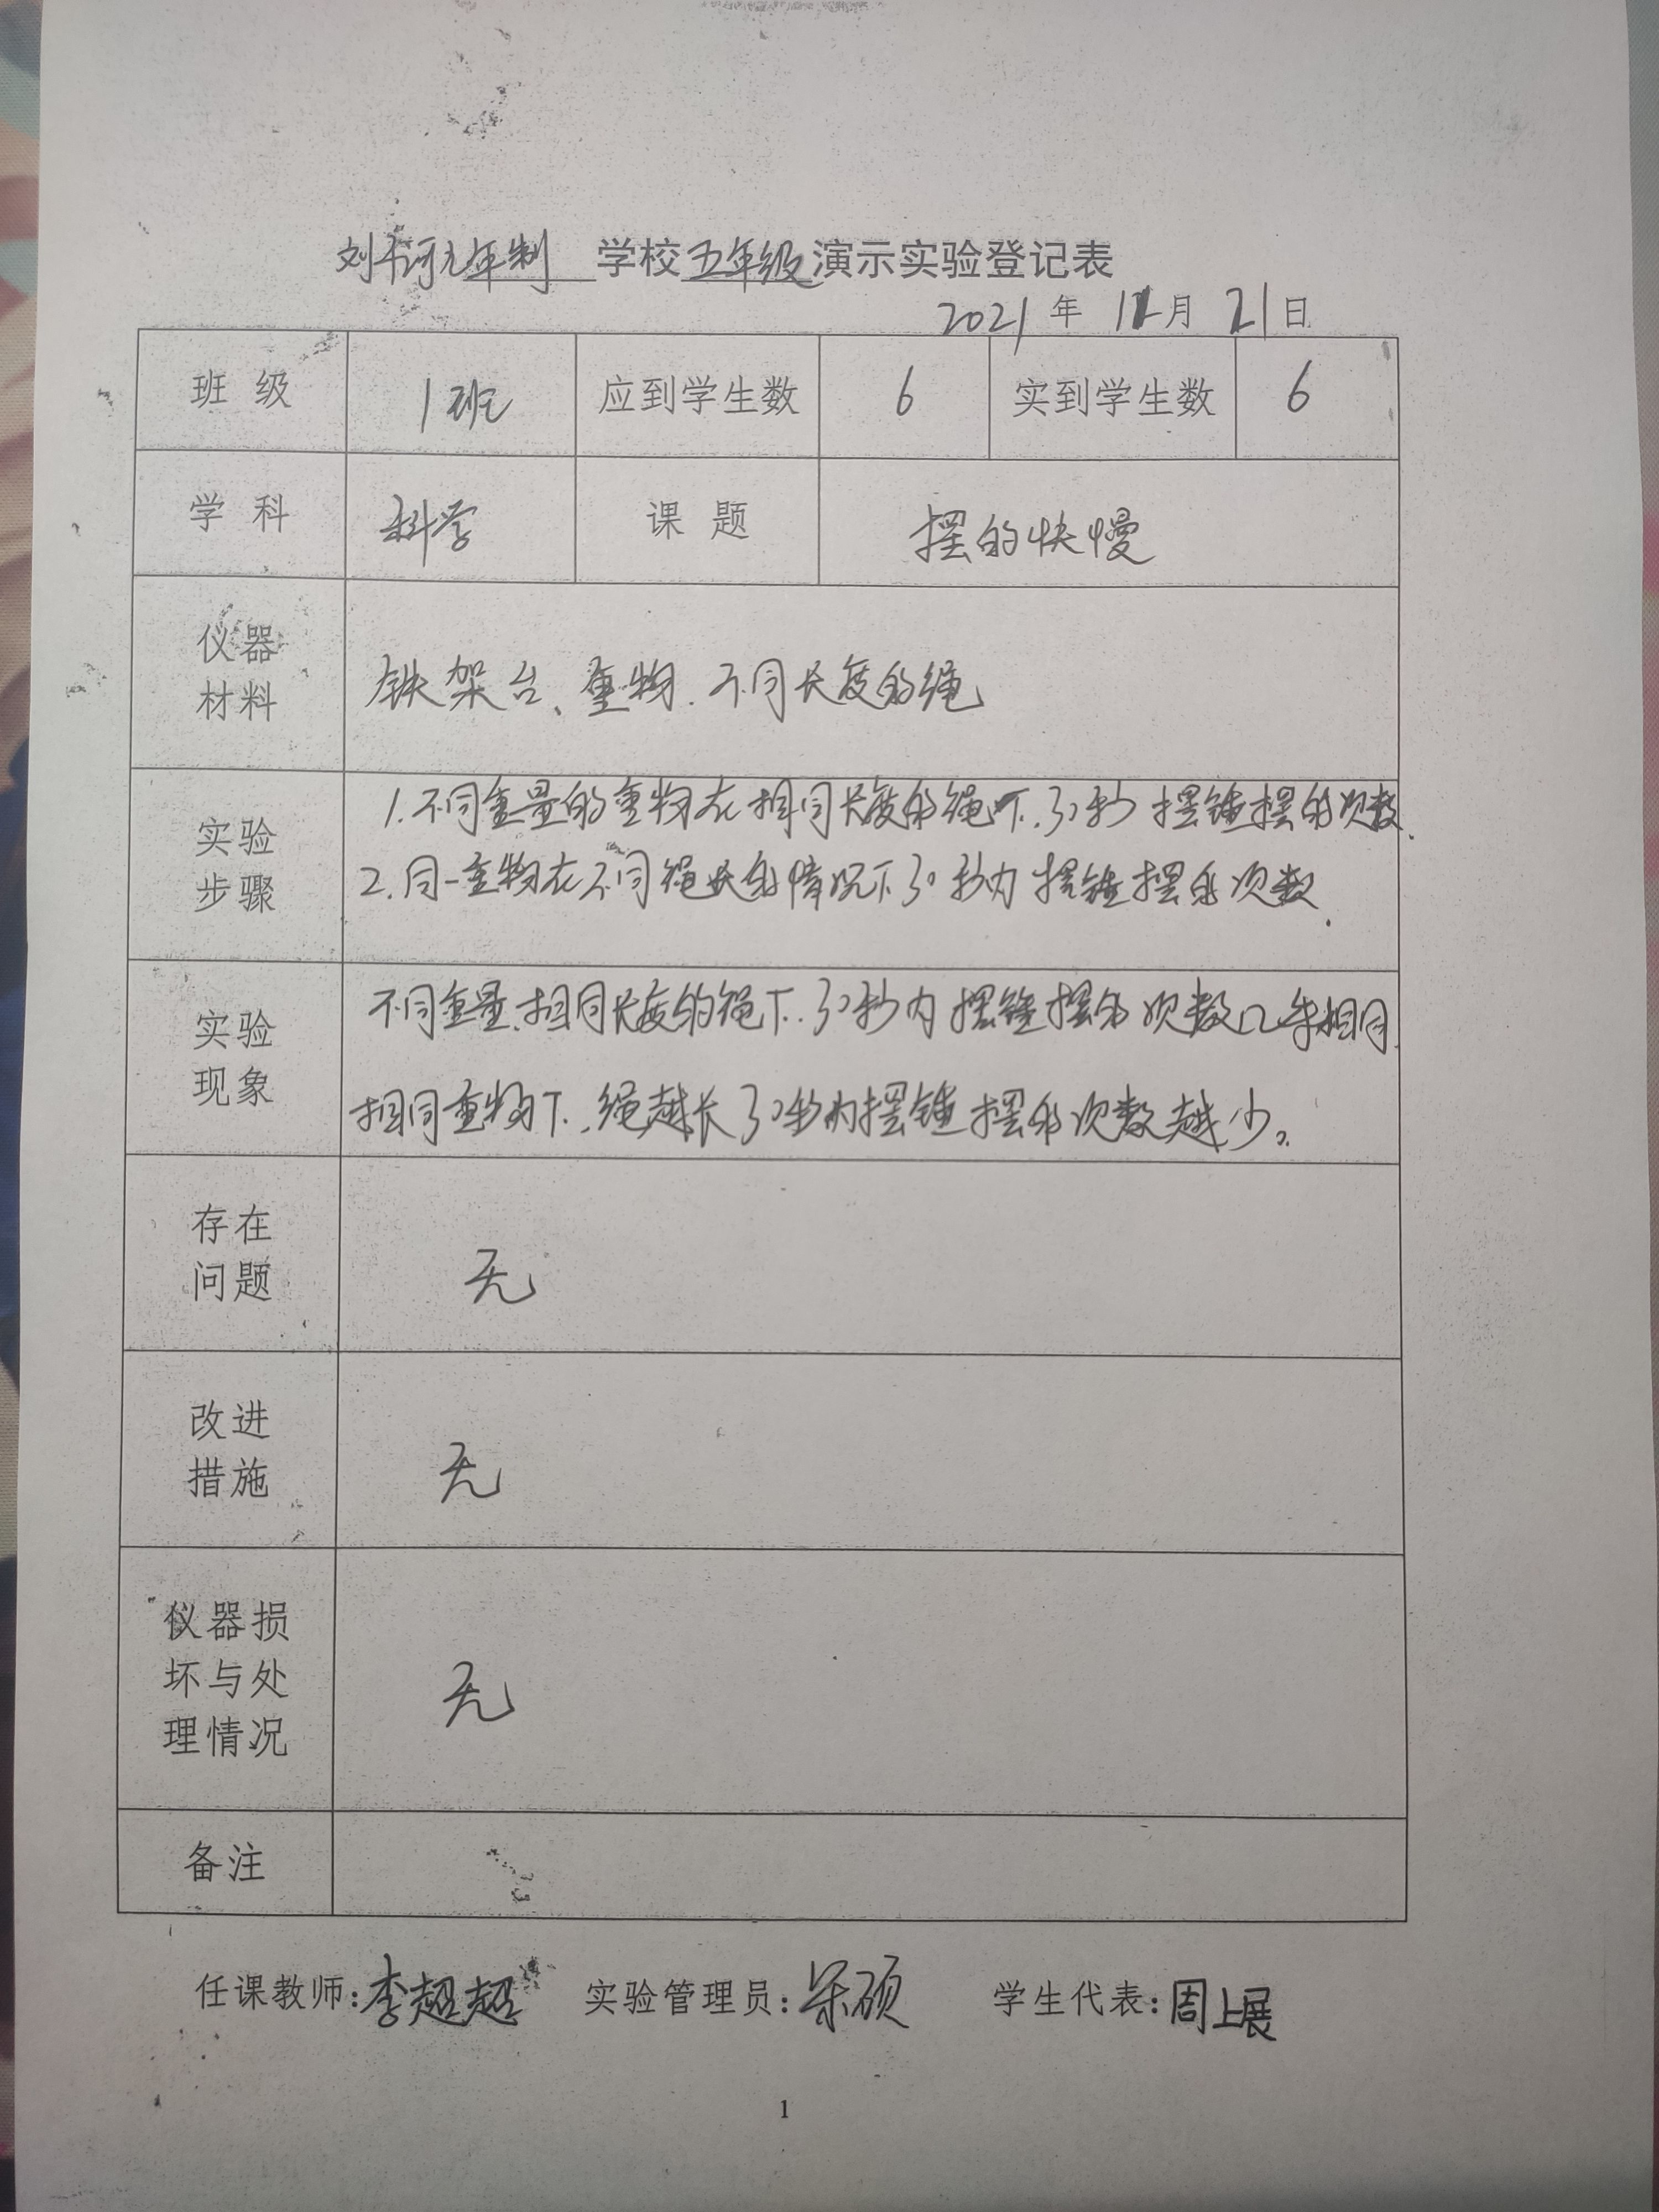 刘千河九年制 学校五年级演示实验登记表
2021 年 12 月 21 日
班 级 1班 应到学生数 6 实到学生数 6
学 科 科学 课 题 摆的快慢
仪器
材料
铁架台、重物.不同长度的绳
实验
步骤
1.不同重量的重物在相同长度的绳下.30秒 摆锤摆的次数.
2.同一重物在不同绳长的情况下30秒内 摆锤摆的次数.
实验
现象
不同重量.相同长度的绳下.30秒内摆锤摆的次数几乎相同.
相同重物下.绳越长30秒内摆锤摆的次数越少。
存在
问题
无
改进
措施
无
仪器损
坏与处
理情况
无
备注
任课教师:李超超 实验管理员: 硕 学生代表:周上展
1